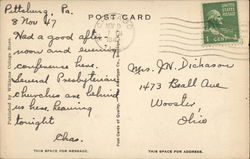 Pittsburg, Pa.
8 Nov 47
POST CARD
Had a good after-
noon and evening
conference here.
Several Presbyterian
Churches are behind
us here. Leaving
tonight
Chas.
Mrs. J.W. Dickason
1473 Beall Ave
Wooster,
Ohio
THIS SPACE FOR MESSAGE.
THIS SPACE FOR ADDRESS.